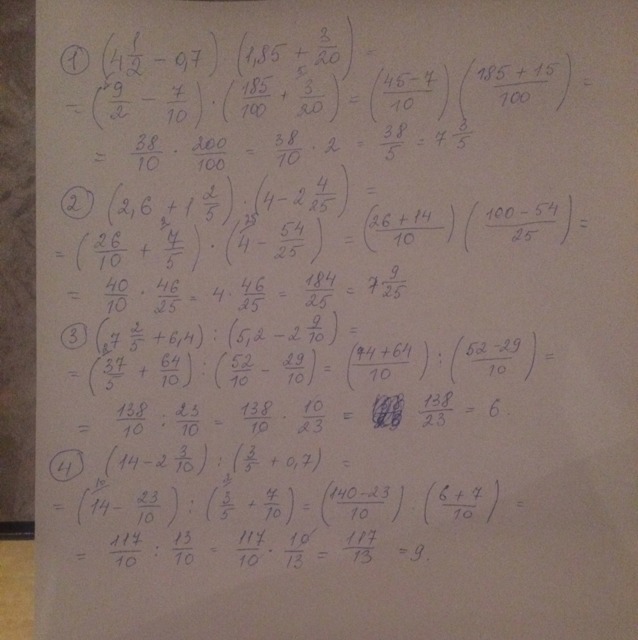 ① (4 1/2 - 0,7) · (1,85 + 3/20) =
= (9/2 - 7/10) · (185/100 + 3/20) = (45-7/10) (185+15/100) =
= 38/10 · 200/100 = 38/10 · 2 = 38/5 = 7 3/5
② (2,6 + 1 2/5) · (4 - 2 4/25) =
= (26/10 + 7/5) · (4 - 54/25) = (26+14/10) (100-54/25) =
= 40/10 · 46/25 = 4 · 46/25 = 184/25 = 7 9/25
③ (7 2/5 + 6,4) : (5,2 - 2 9/10) =
= (37/5 + 64/10) : (52/10 - 29/10) = (74+64/10) : (52-29/10) =
= 138/10 : 23/10 = 138/10 · 10/23 = 138/23 = 6.
④ (14 - 2 3/10) : (3/5 + 0,7) =
= (14 - 23/10) : (3/5 + 7/10) = (140-23/10) · (6+7/10) =
= 117/10 : 13/10 = 117/10 · 10/13 = 117/13 = 9.